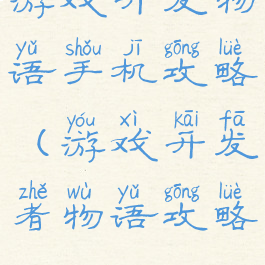 游戏开发物
yǔ shǒu jī gōng lüè
语手机攻略
yóu xì kāi fā
(游戏开发
zhě wù yǔ gōng lüè
者物语攻略